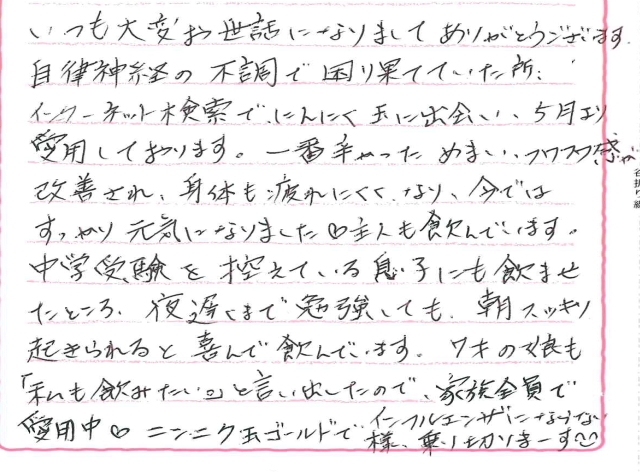 いつも大変お世話になりまして ありがとうございます。
自律神経の不調で困り果てていた所、
インターネット検索で、にんにく玉に出会い、5月より
愛用しております。一番辛かった めまい、フワフワ感が
改善され、身体も疲れにくくなり、今では
すっかり元気になりました♡主人も飲んでいます。
中学受験を控えている息子にも飲ませ
たところ、夜遅くまで勉強しても、朝スッキリ
起きられると喜んで飲んでいます。7才の娘も
「私も飲みたい。」と言い出したので、家族全員で
愛用中♡ ニンニク玉ゴールドで インフルエンザにならない
様、乗り切りまーす